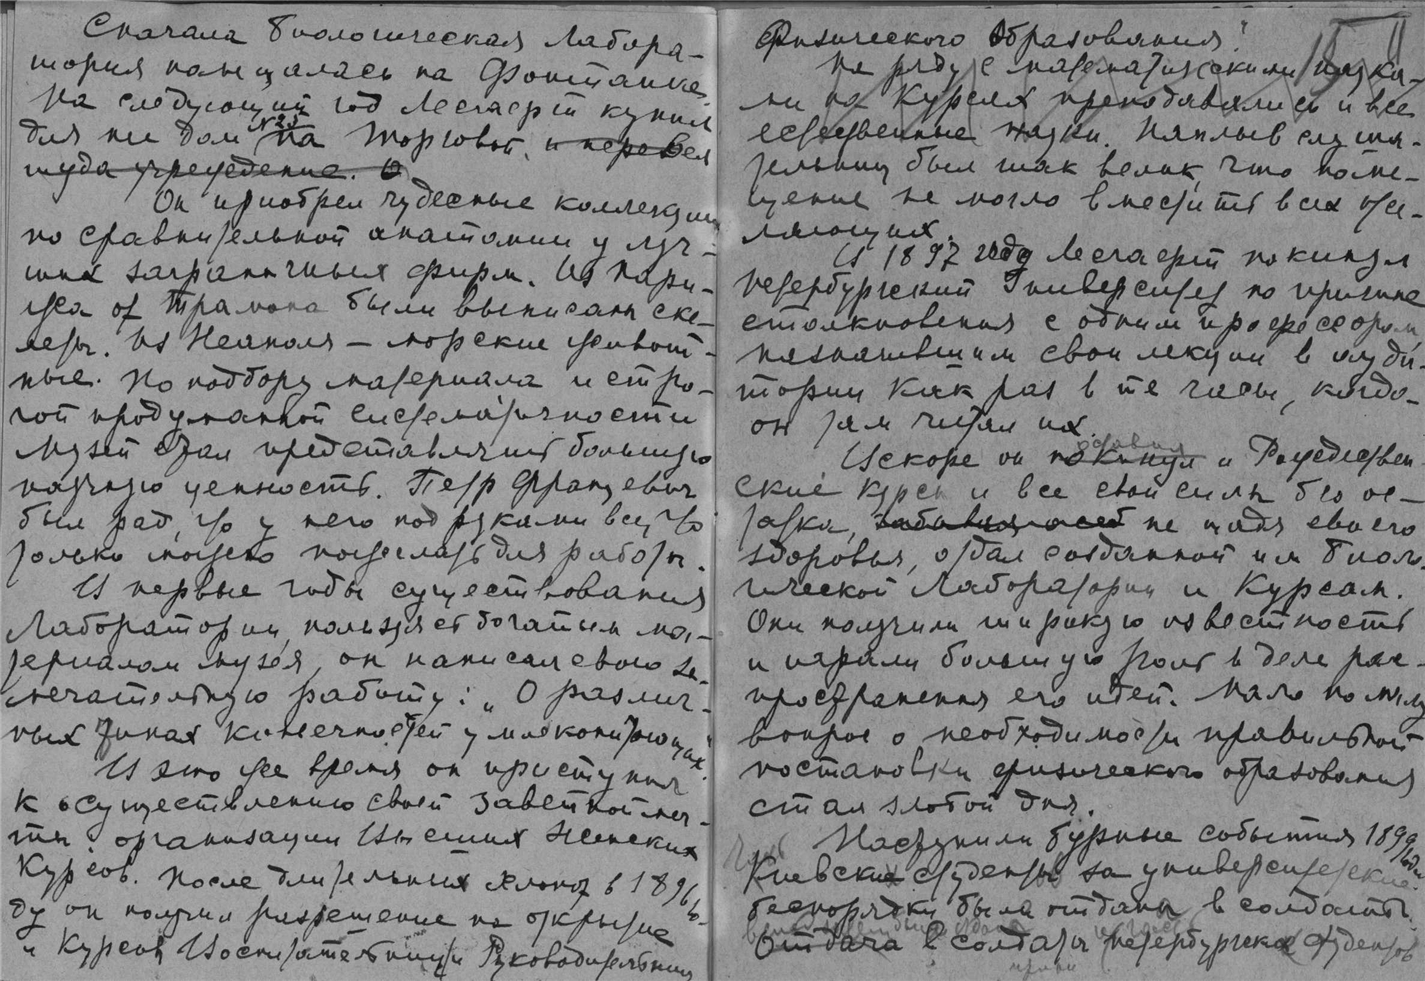 Сначала биологическая Лабора-
тория помещалась на Фонтанке.
На следующий год Лесгафт купил
для нее дом № 25 на Торговой. и перевел
туда учреждение. О
Он приобрел чудесные коллекции
по сравнительной анатомии у луч-
ших заграничных фирм. Из Пари-
жа от Трамона были выписаны ске-
леты. Из Неаполя – морские живот-
ные. По подбору материала и стро-
гой продуманной систематичности
музей стал представлять большую
научную ценность. Петр Францевич
был рад, что у него под руками все, что
только можно пожелать для работы.
В первые годы существования
Лаборатории, пользуясь богатым ма-
териалом музея, он написал свою за-
мечательную работу: „О различ-
ных типах конечностей у млекопитающих".
В это же время он приступил
к осуществлению своей заветной меч-
ты: организации Высших Женских
Курсов. После длительных хлопот в 1896 го-
ду он получил разрешение на открытие
„Курсов Воспитательниц и Руководительниц
Физического Образования".
На ряду с математическими наука-
ми на Курсах преподавались и все
естественные науки. Наплыв слуша-
тельниц был так велик, что поме-
щение не могло вместить всех же-
лающих.
В 1897 году Лесгафт покинул
петербургский Университет по причине
столкновения с одним профессором,
назначившим свои лекции в ауди-
тории как раз в те часы, когда
он там читал их.
Вскоре он покинул оставил и Рождествен-
ские курсы и все свои силы без ос-
татка, не щадя своего
здоровья, отдал созданной им Биоло-
гической Лаборатории и Курсам.
Они получили широкую известность
и играли большую роль в деле рас-
пространения его идей. Мало по малу
вопрос о необходимости правильной
постановки физического образования
стал злобой дня.
Наступили бурные события 1899 года
Киевские студенты за университетские
беспорядки были отданы в солдаты.
Отдача в солдаты петербургских студентов